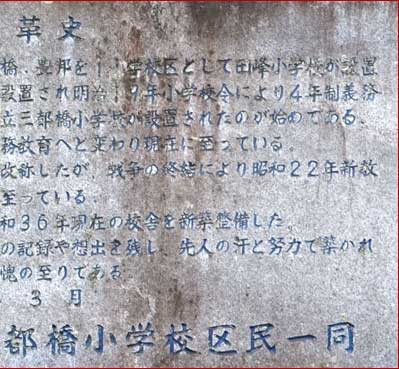 革史
橋、豊邦を1 学校区として田峰小学校が設置
設置され明治19年小学校令により4年制義務
立三都橋小学校が設置されたのが始めてある、
務教育へと変わり現在に至っている。
改称したが、戦争の終結により昭和22年新教
至っている。
和36年現在の校舎を新築整備した。
の記録や想出を残し、先人の汗と努力で築かれ
愧の至りである
3月
都橋小学校区民一同